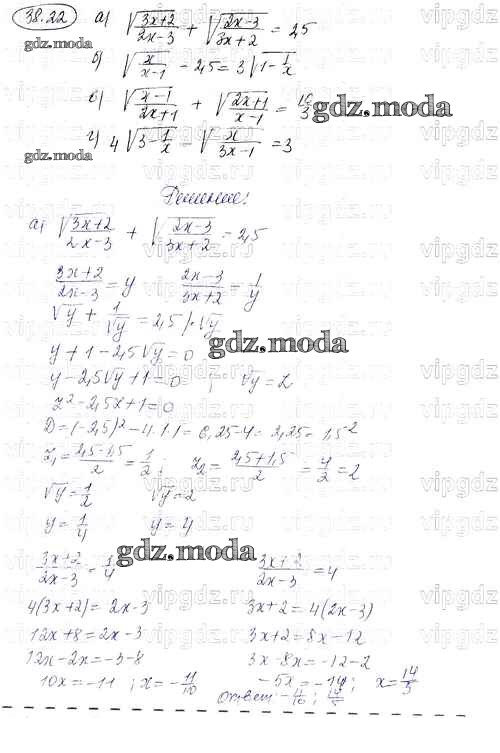 38.22 а) √(3x+2)/(2x-3) + √(2x-3)/(3x+2) = 2,5
б) √x/(x-1) - 2,5 = 3√1-1/x
в) √(x-1)/(2x+1) + √(2x+1)/(x-1) = 10/3
г) 4√3-1/x - √x/(3x-1) = 3
gdz.moda
gdz.moda
gdz.moda
vipgdz.ru
Решение:
а) √(3x+2)/(2x-3) + √(2x-3)/(3x+2) = 2,5
(3x+2)/(2x-3) = y (2x-3)/(3x+2) = 1/y
√y + 1/√y = 2,5 | · √y
y + 1 - 2,5√y = 0
gdz.moda
y - 2,5√y + 1 = 0 ; √y = z
z² - 2,5x + 1 = 0
D = (-2,5)² - 4·1·1 = 6,25 - 4 = 2,25 = 1,5²
z₁ = (2,5-1,5)/2 = 1/2 ; z₂ = (2,5+1,5)/2 = 4/2 = 2
√y = 1/2 √y = 2
y = 1/4 y = 4
gdz.moda
(3x+2)/(2x-3) = 1/4 (3x+2)/(2x-3) = 4
4(3x+2) = 2x-3 3x+2 = 4(2x-3)
12x+8 = 2x-3 3x+2 = 8x-12
12x-2x = -3-8 3x-8x = -12-2
10x = -11 ; x = -11/10 -5x = -14 ; x = 14/5
Ответ: -11/10 ; 14/5